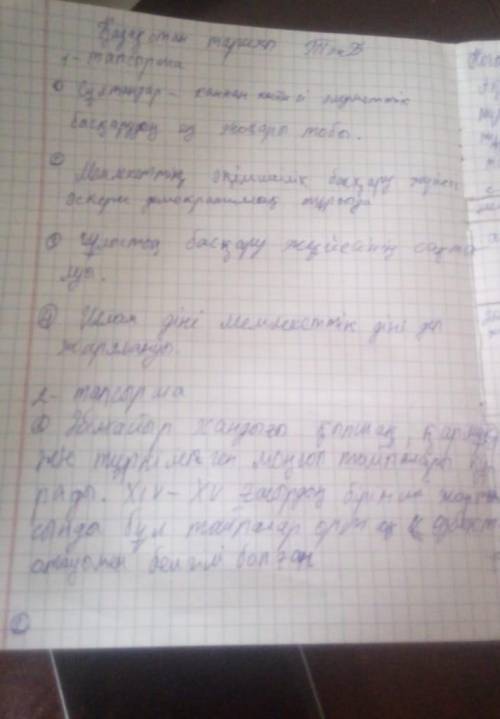 Қазақстан тарихы ТЖБ
1- тапсырма
① Сұлтандар – ханнан кейінгі мемлекеттік
басқарудың ең жоғары тобы.
② Мемлекеттің әкімшілік басқару жүйесі
әскери демократиялық тұрғыда
③ Ұлыстық басқару жүйесінің сақта
луы.
④ Ислам діні мемлекеттік діні деп
жариялануы.
2- тапсырма
① Әбілқайыр хандығы қыпшақ, қарлұқ
түркіленген моңғол тайпалары құ
рады. XIV-XV ғасырдың бірінші жарты
сында бұл тайпалар ортақ « өзбек»
атауымен белгілі болған
②